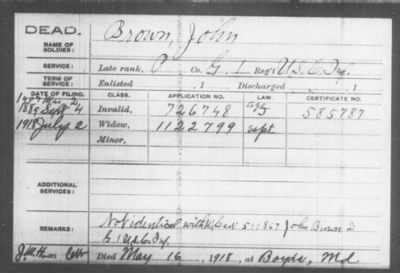 DEAD.
Brown, John
NAME OF
SOLDIER:
SERVICE: Late rank, P Co. G, 1 Reg't U.S.C. Inf.
TERM OF
SERVICE: Enlisted , 1 Discharged , 1
DATE OF FILING. CLASS. APPLICATION NO. LAW. CERTIFICATE NO.
1889 Sept 4 Invalid, 726748 585787
1918 July 2 Widow, 1122799 Sept
Minor,
ADDITIONAL
SERVICES:
REMARKS: Not identical with 511867 John Brown
G 1 U.S.C. Inf
Died May 16, 1918, at Boyds, Md